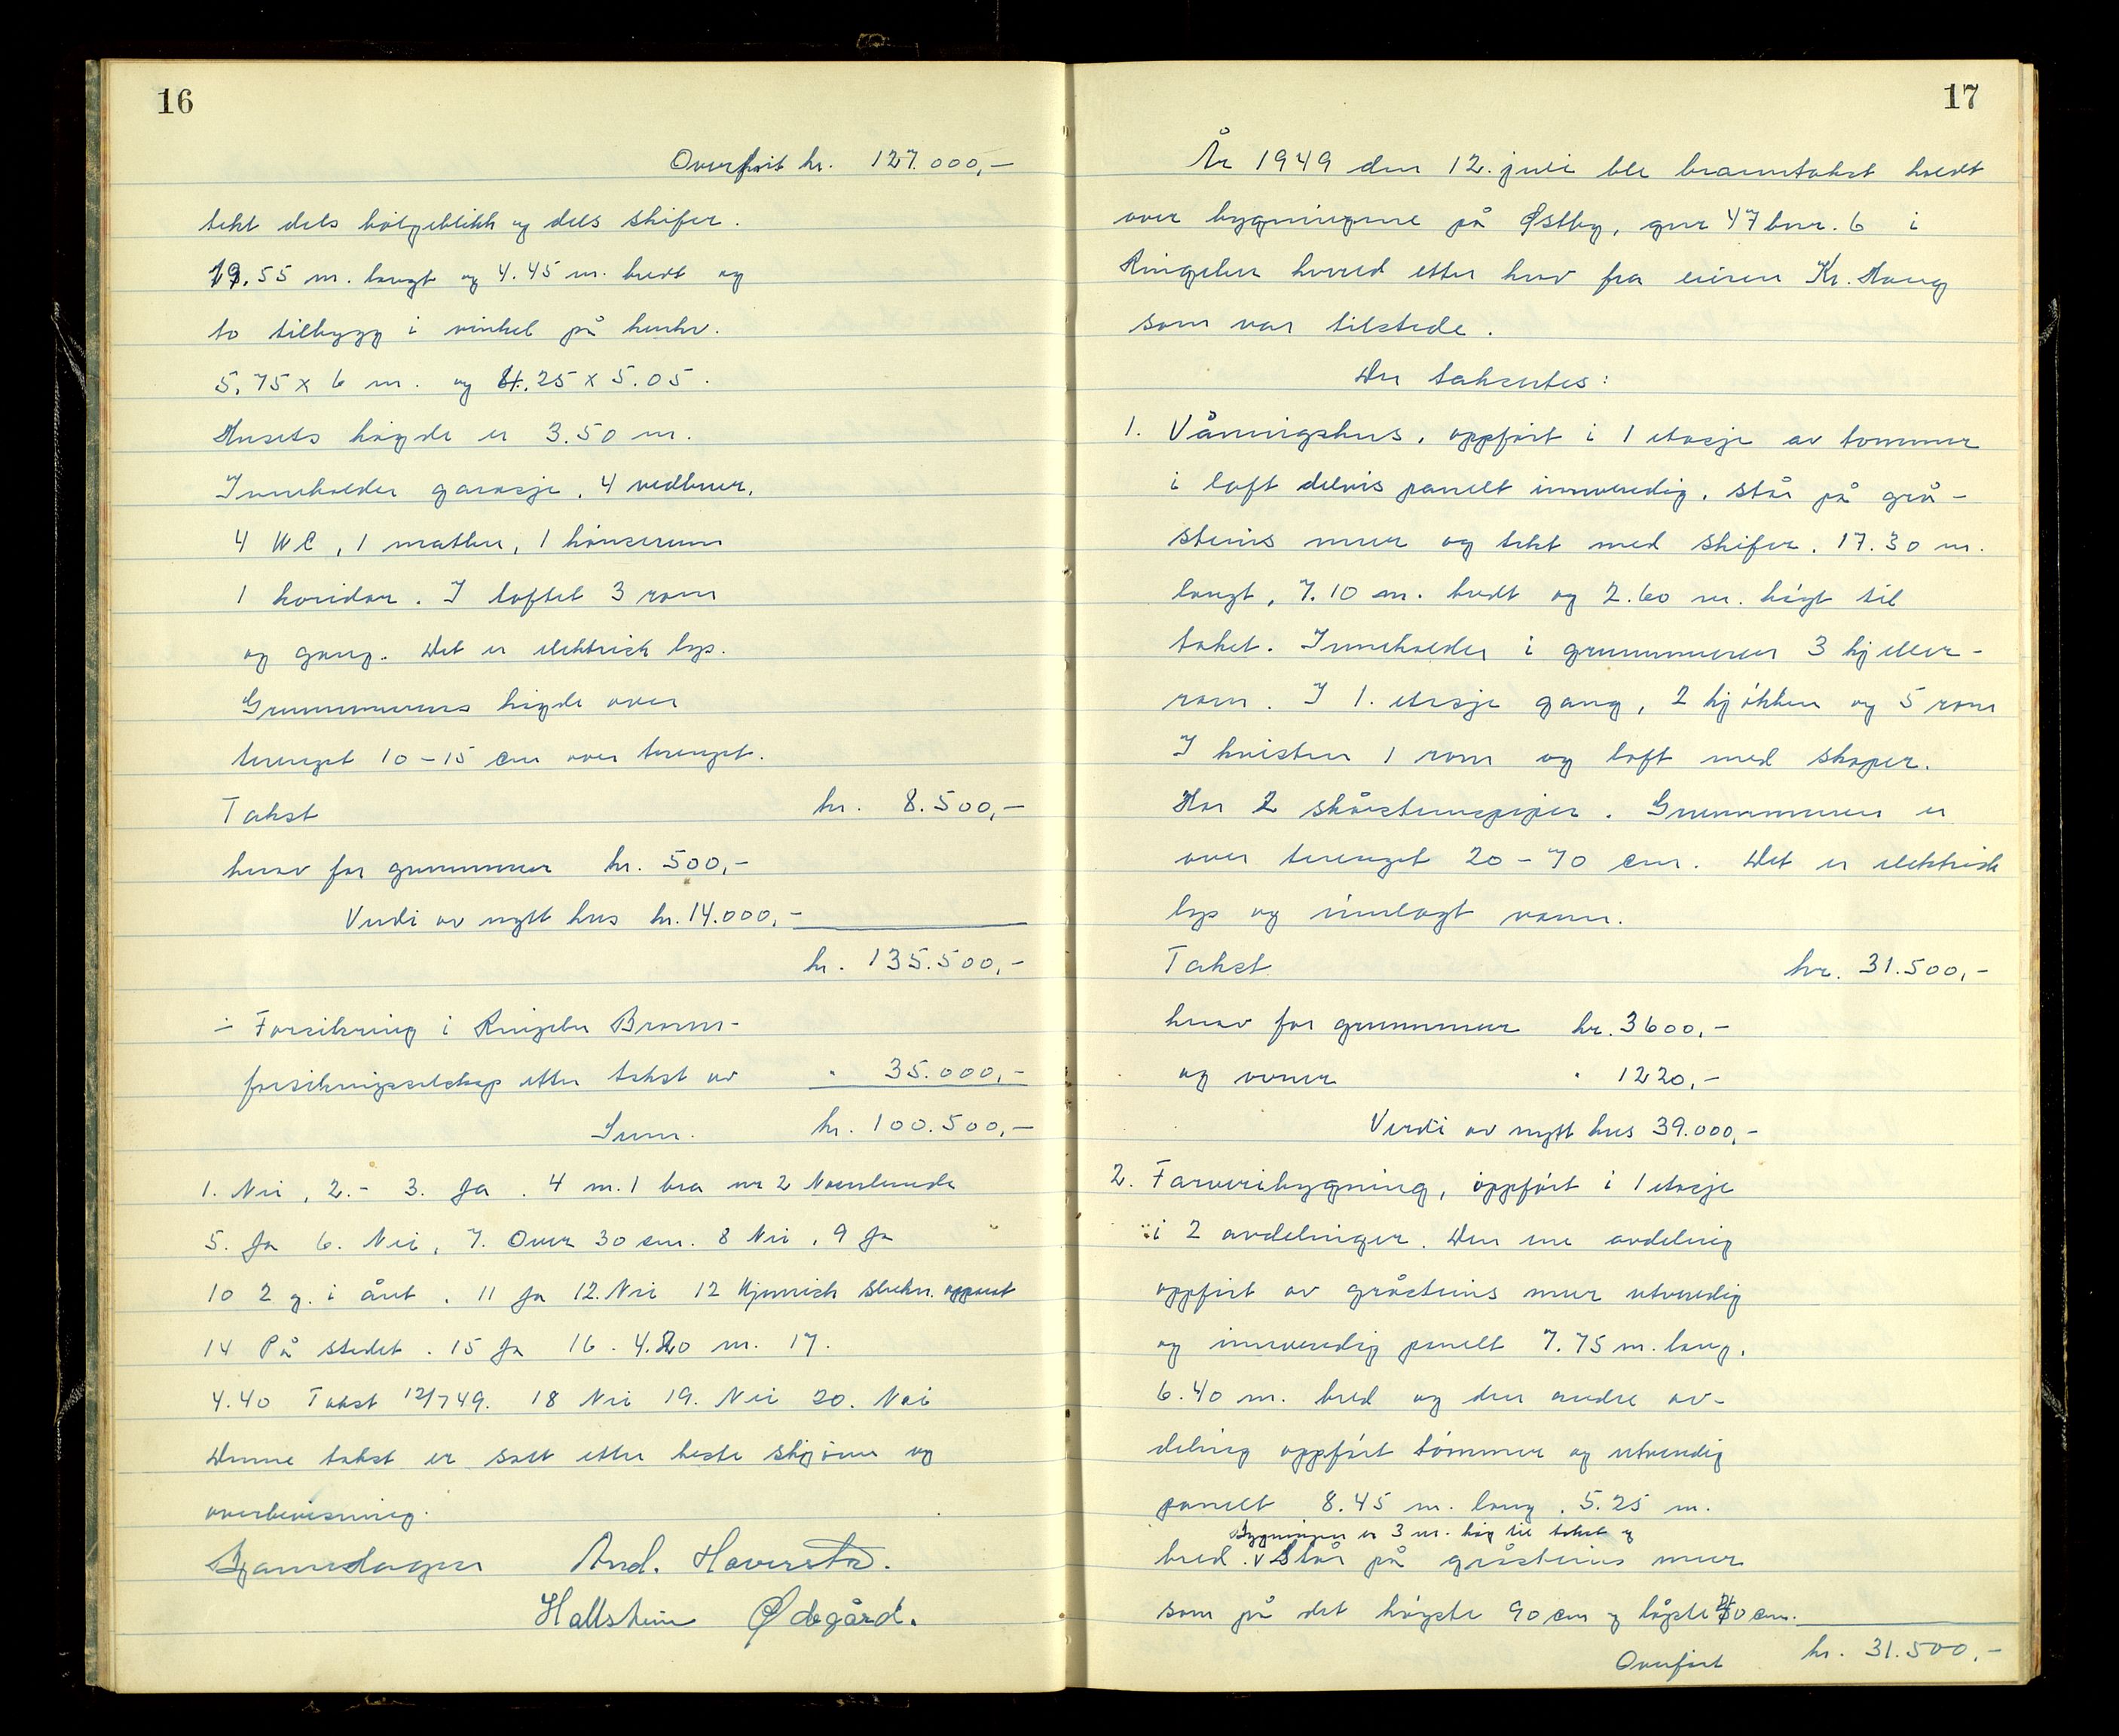 16
Overført kr. 127.000,-
tekt dels bølgeblikk og dels skifer.
19.55 m. langt og 4.45 m. bredt og
to tilbygg i vinkel på henhv.
5.75 x 6 m. og 4.25 x 5.05.
Husets høyde er 3.50 m.
Inneholder garasje, 4 vedbuer,
4 WC, 1 matbu, 1 hønserum
1 koridor. I loftet 3 rom
og gang. Det er elektrisk lys.
Grunnmurens høyde over
terenget 10-15 cm over terenget.
Takst kr. 8.500,-
herav for grunnmur kr. 500,-
Verdi av nytt hus kr. 14.000,-
kr. 135.500,-
÷ Forsikring i Ringebu Brann-
forsikringsselskap etter takst av " 35.000,-
Sum. kr. 100.500,-
1. Nei, 2.- 3. Ja. 4 nr. 1 bra nr 2 Noenlunde
5. Ja 6. Nei, 7. Over 30 cm. 8 Nei, 9 Ja
10 2 g. i året. 11 Ja 12. Nei 12 Kjemisk slukn. apparat
14 På stedet. 15 Ja 16. 4.20 m. 17.
4.40 Takst 12/7 49. 18 Nei 19. Nei 20. Nei
Denne takst er satt etter beste skjønn og
overbevisning.
And. Haversta.
Hallstein Ødegård.
17
År 1949 den 12. juli ble branntakst holdt
over bygningene på Østby, gnr 47 bnr. 6 i
Ringebu herred etter krav fra eieren Kr. Haug
som var tilstede.
Der takseres:
1. Våningshus, oppført i 1 etasje av tømmer
i loft delvis panelt innvendig, står på grå-
steins mur og tekt med skifer. 17.30 m.
langt, 7.10 m. bredt og 2.60 m. høgt til
taket. Inneholder i grunnmuren 3 kjeller-
rom. I 1. etasje gang, 2 kjøkken og 5 rom
I kvisten 1 rom og loft med skaper.
Har 2 skorsteinspiper. Grunnmuren er
over terenget 20-70 cm. Det er elektrisk
lys og innlagt vann.
Takst kr. 31.500,-
herav for grunnmur kr. 3600,-
og murer " 1220,-
Verdi av nytt hus 39.000,-
2. Farveribygning, oppført i 1 etasje
i 2 avdelinger. Den ene avdeling
oppført av gråsteins mur utvendig
og innvendig panelt 7.75 m. lang,
6.40 m. bred og den andre av-
deling oppført tømmer og utvendig
panelt 8.45 m. lang. 5.25 m.
Bygningen er 3 m. høg til taket og
bred. står på gråsteins mur
som på det høgste 90 cm og lågste cm.
Overført kr. 31.500,-